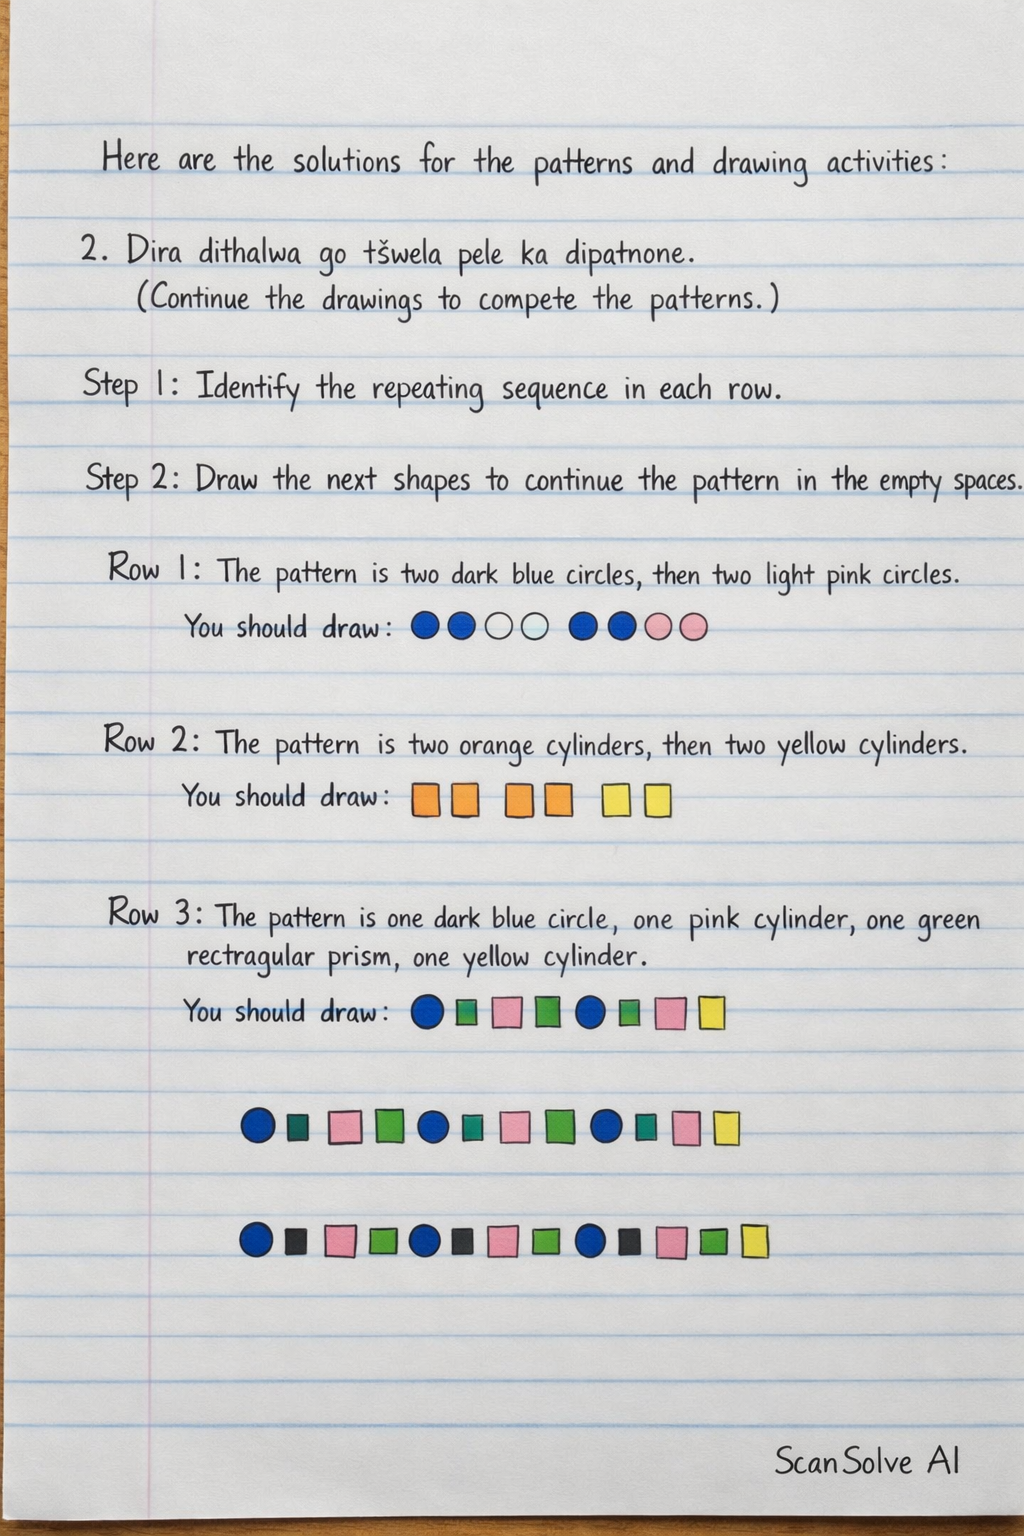 Here are the solutions for the patterns and drawing activities:
2. Dira dithalwa go tšwela pele ka dipatnone.
(Continue the drawings to compete the patterns.)
Step 1: Identify the repeating sequence in each row.
Step 2: Draw the next shapes to continue the pattern in the empty spaces.
Row 1: The pattern is two dark blue circles, then two light pink circles.
You should draw:
Row 2: The pattern is two orange cylinders, then two yellow cylinders.
You should draw:
Row 3: The pattern is one dark blue circle, one pink cylinder, one green
rectragular prism, one yellow cylinder.
You should draw:
ScanSolve AI